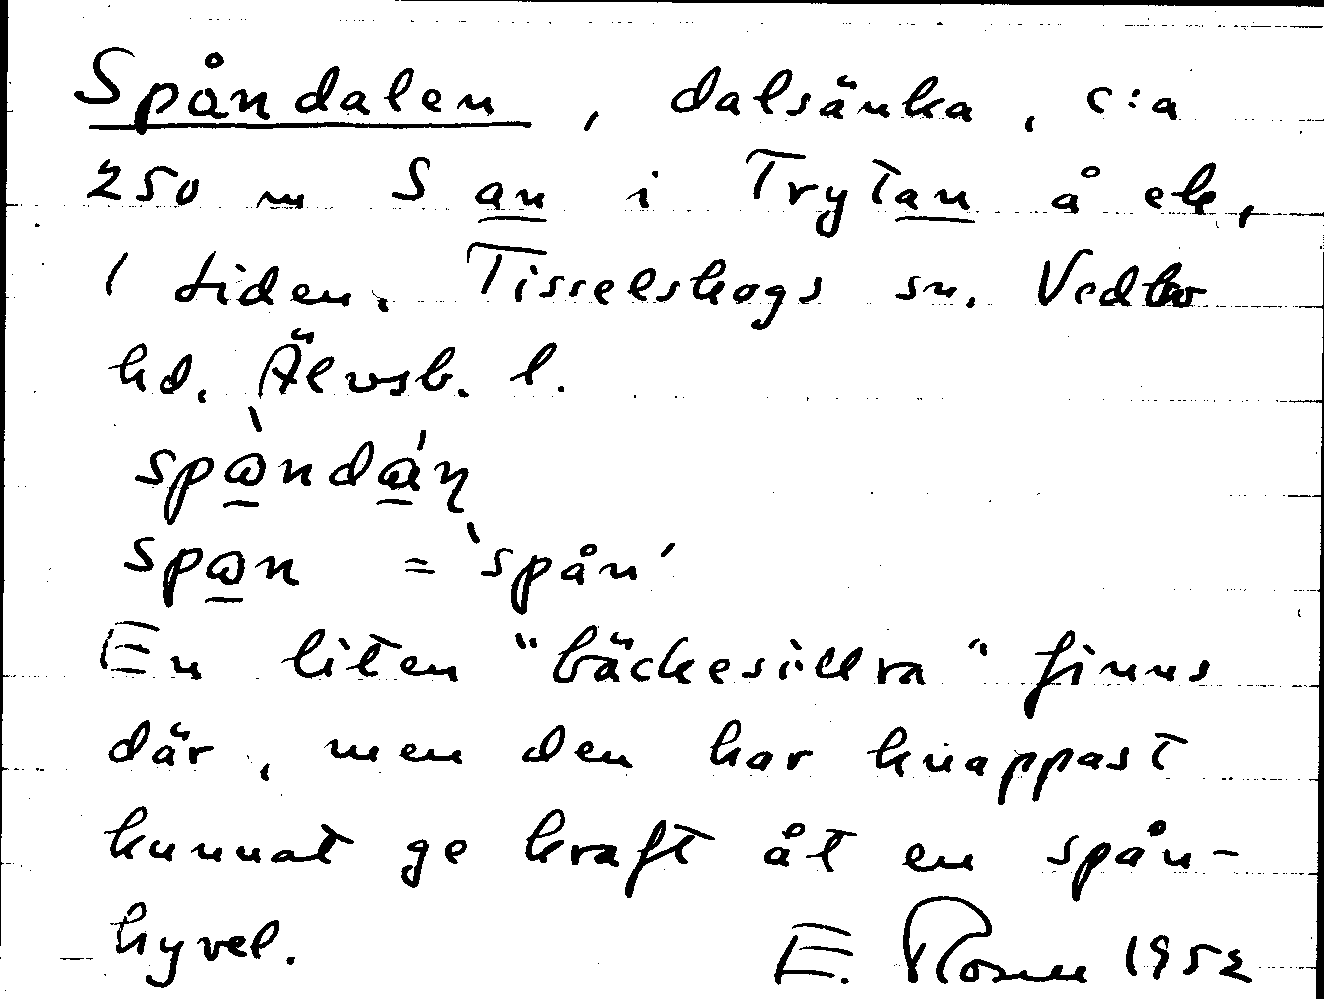 Spåndalen, dalsänka, c:a
250 m S an i Trytan å ek,
1 tiden. Tisselskogs sn. Vedbo
hd. Älvsb. l.
spàndáɳ
span = 'spån'
En liten "bäckesillra" finns
där, men den har knappast
kunnat ge kraft åt en spån-
hyvel.
E. 1952